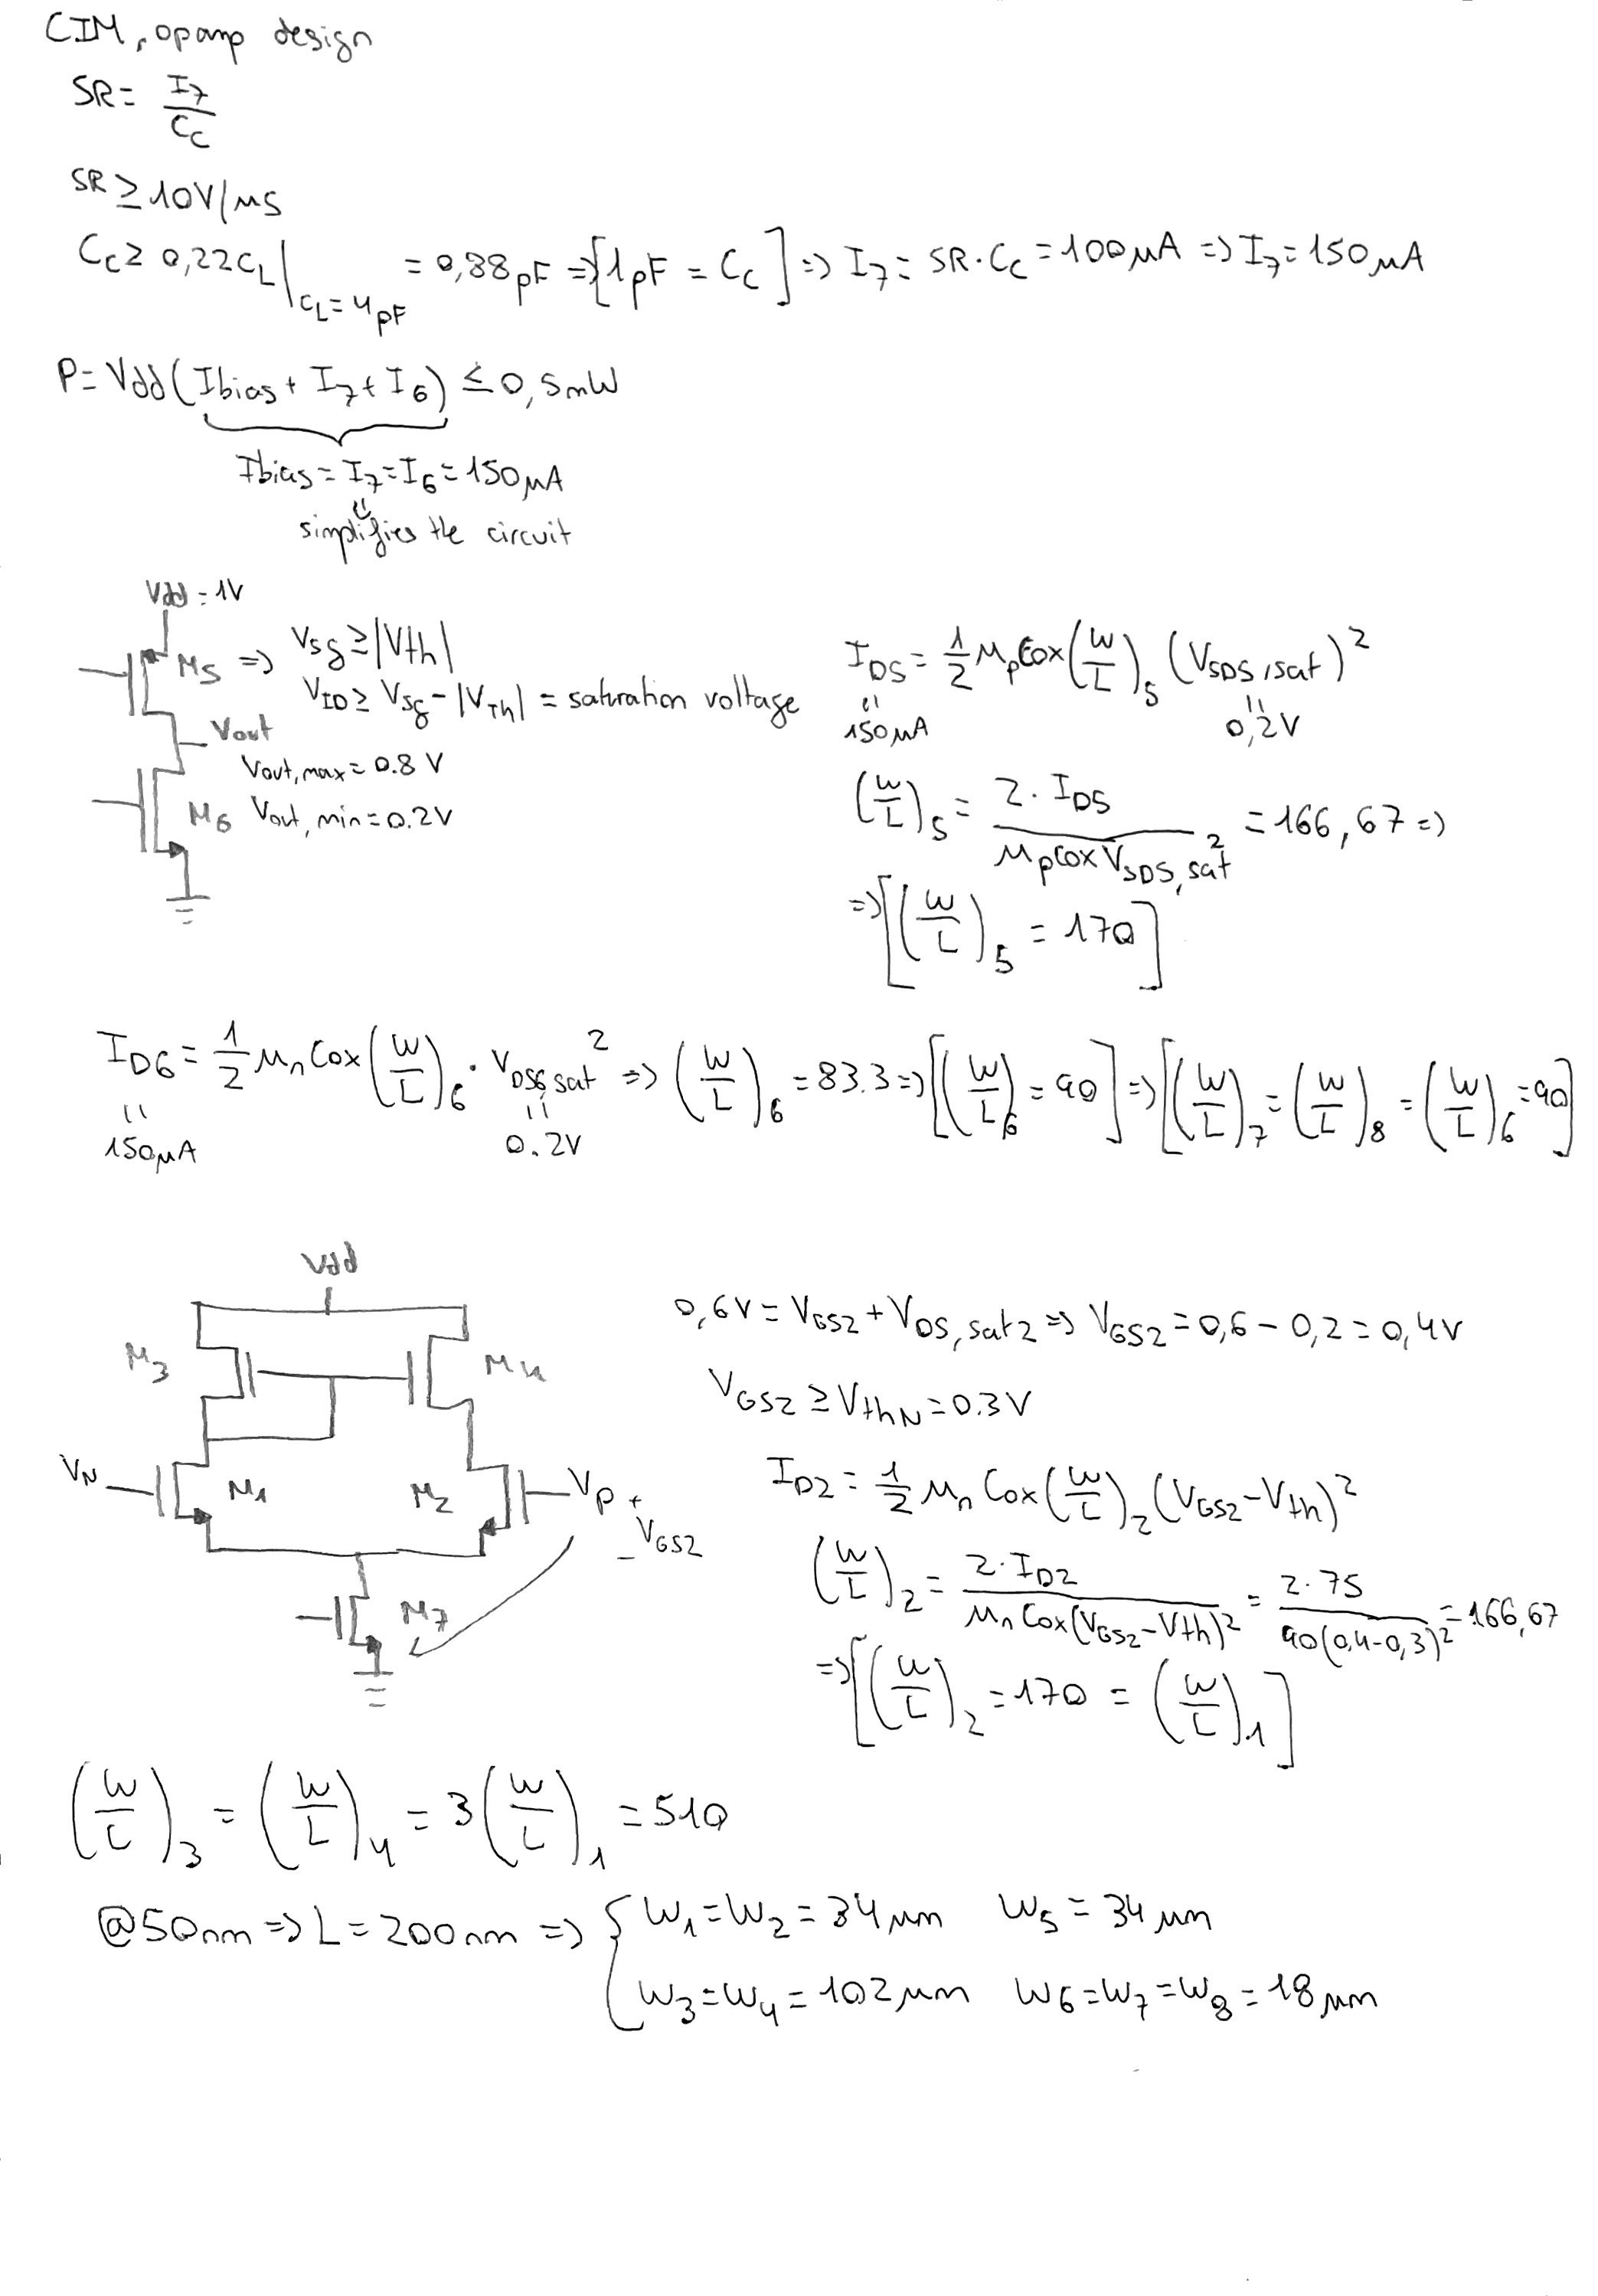 CIM, opamp design
SR = I7/CC
SR ≥ 10V/μS
CC ≥ 0,22CL |CL=4pF = 0,88pF => [1pF = CC] => I7 = SR·CC = 100μA => I7 = 150μA
P = Vdd(Ibias + I7 + I6) ≤ 0,5mW
Ibias = I7 = I6 = 150μA
simplifies the circuit
Vdd = 1V
M5 => Vsg ≥ |Vth|
VSD ≥ Vsg - |VTh| = saturation voltage
Vout
Vout,max = 0.8 V
M6 Vout,min = 0.2V
ID5 = 1/2 μpCox(W/L)5 (VSD5,sat)²
150μA 0,2V
(W/L)5 = 2·ID5 / μpCox VSD5,sat² = 166,67 =>
=> [(W/L)5 = 170]
ID6 = 1/2 μnCox(W/L)6 · VDS6,sat² => (W/L)6 = 83.3 => [(W/L)6 = 90] => [(W/L)7 = (W/L)8 = (W/L)6 = 90]
150μA 0.2V
Vdd
M3 M4
VN M1 M2 VP + VGS2 -
M7
0,6V = VGS2 + VDS,sat2 => VGS2 = 0,6 - 0,2 = 0,4V
VGS2 ≥ VthN = 0.3V
ID2 = 1/2 μnCox(W/L)2 (VGS2 - Vth)²
(W/L)2 = 2·ID2 / μnCox(VGS2 - Vth)² = 2·75 / 90(0,4-0,3)² = 166,67
=> [(W/L)2 = 170 = (W/L)1]
(W/L)3 = (W/L)4 = 3(W/L)1 = 510
@50nm => L = 200nm => { W1 = W2 = 34μm W5 = 34μm
W3 = W4 = 102μm W6 = W7 = W8 = 18μm